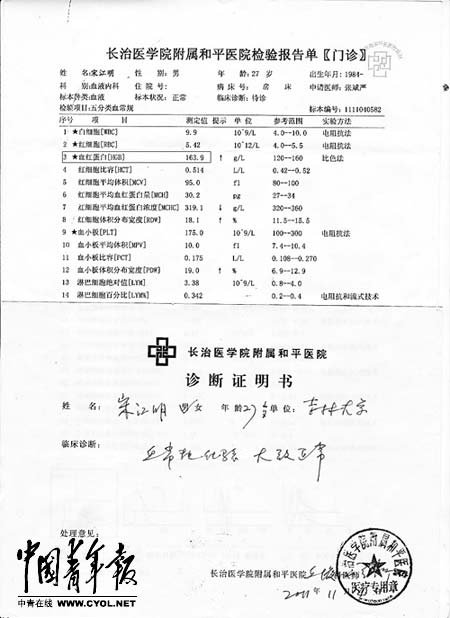 长治医学院附属和平医院检验报告单〖门诊〗
姓 名:宋江明 性 别:男 年 龄:27 岁 出生年月:1984-
科 别:血液内科 住 院 号: 病 床 号: 房 床 申请医师:张斌严
标本种类:血液 标本状况:正常 临床诊断:待诊
检验项目:五分类血常规 标本编号:1111040582
序号 项 目 测定值 提示 单 位 参考范围 实验方法
1 ★白细胞[WBC] 9.9 10^9/L 4.0--10.0 电阻抗法
2 ★红细胞[RBC] 5.42 10^12/L 4.0--5.5 电阻抗法
3 ★血红蛋白[HGB] 163.9 ↑ g/L 120--160 比色法
4 红细胞比容[HCT] 0.514 L/L 0.42--0.52
5 红细胞平均体积[MCV] 95.0 fl 80--100
6 红细胞平均血红蛋白量[MCH] 30.2 pg 27--34
7 红细胞平均血红蛋白浓度[MCHC] 319.1 ↓ g/L 320--360
8 红细胞体积分布宽度[RDW] 18.1 ↑ % 11.5--15.5
9 ★血小板[PLT] 175.0 10^9/L 100--300 电阻抗法
10 血小板平均体积[MPV] 10.0 fl 7.4--10.4
11 血小板比容[PCT] 0.175 L/L 0.108--0.270
12 血小板体积分布宽度[PDW] 19.0 ↑ % 6.9--12.9
13 淋巴细胞绝对值[LYM] 3.38 10^9/L 0.8--4.0
14 淋巴细胞百分比[LYM%] 0.342 0.2--0.4 电阻抗和流式技术
长治医学院附属和平医院
诊断证明书
姓 名: 宋江明 男女 年 龄 27岁 单位: 吉林大学
临床诊断:
血常规化验 大致正常
处理意见:
长治医学院附属和平医院
2011 11
长治医学院附属和平医院
医疗专用章
中国青年报
中青在线 WWW.CYOL.NET